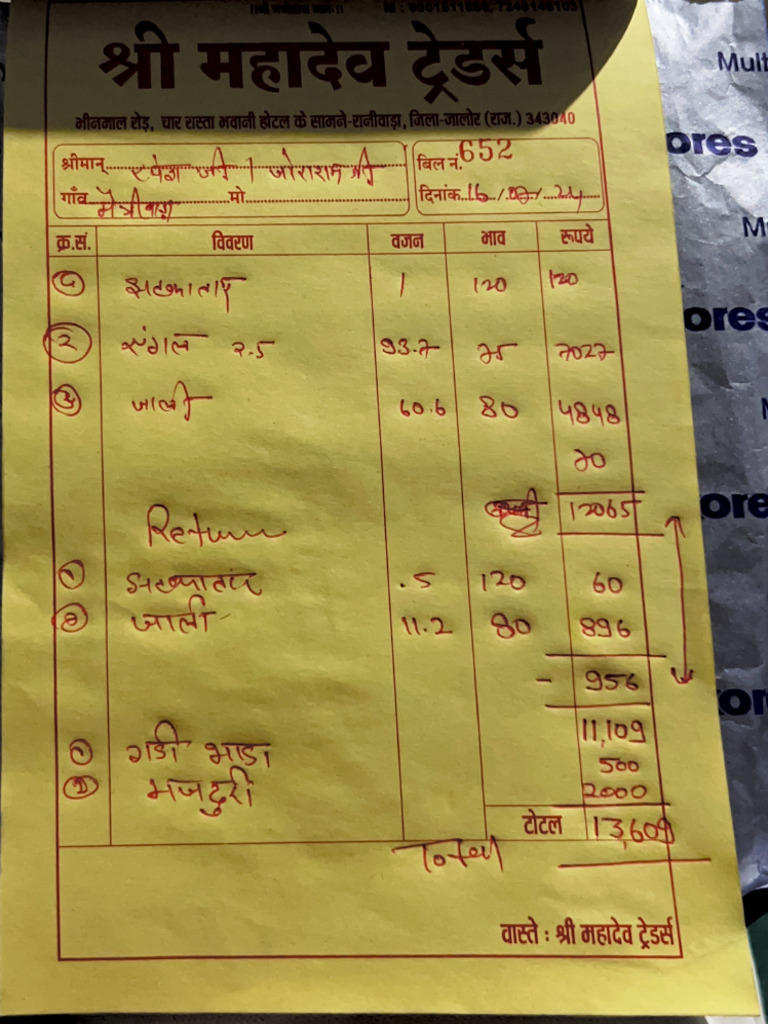 श्री महादेव ट्रेडर्स
भीनमाल रोड़, चार रास्ता भवानी होटल के सामने-रानीवाड़ा, जिला-जालोर (राज.) 343040
श्रीमान् जी / जोराराम जी
बिल नं. 652
गाँव मैत्रीवाड़ा मो.
दिनांक 16/07/24
क्र.सं. विवरण वजन भाव रूपये
1 120 120
२ 2.5 93.7 75 7027
३ जाली 60.6 80 4848
70
12065
Return
१ .5 120 60
२ जाली 11.2 80 896
- 956
11,109
१ गाडी भाडा 500
२ मजदुरी 2000
टोटल 13,609
Total
वास्ते : श्री महादेव ट्रेडर्स
Mult
ores
ores
ore
or